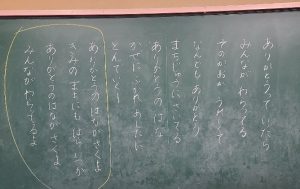 ありがとうっていったら
みんながわらってる
そのかおが うれしくて
なんども ありがとう
まちじゅうにさいてる
ありがとうのはな
かぜにふかれ あしたに
とんでいく〜
ありがとうのはながさくよ
きみのまちにも ほらいつか
ありがとうのはながさくよ
みんながわらってるよ